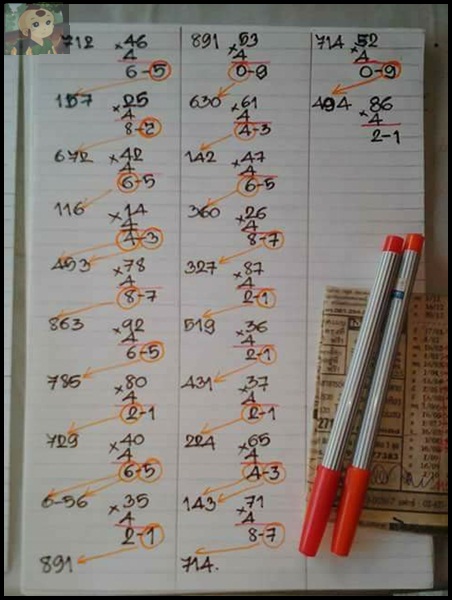 712 ×46
4
6-5
157 ×25
4
8-7
672 ×42
4
6-5
116 ×14
4
4-3
453 ×78
4
8-7
863 ×92
4
6-5
785 ×80
4
2-1
729 ×40
4
6-5
6-56 ×35
4
2-1
891
891 ×53
4
0-9
630 ×61
4
4-3
142 ×47
4
6-5
360 ×26
4
8-7
327 ×87
4
2-1
519 ×36
4
2-1
431 ×37
4
2-1
224 ×65
4
4-3
143 ×71
4
8-7
714.
714 ×52
4
0-9
494 ×86
4
2-1